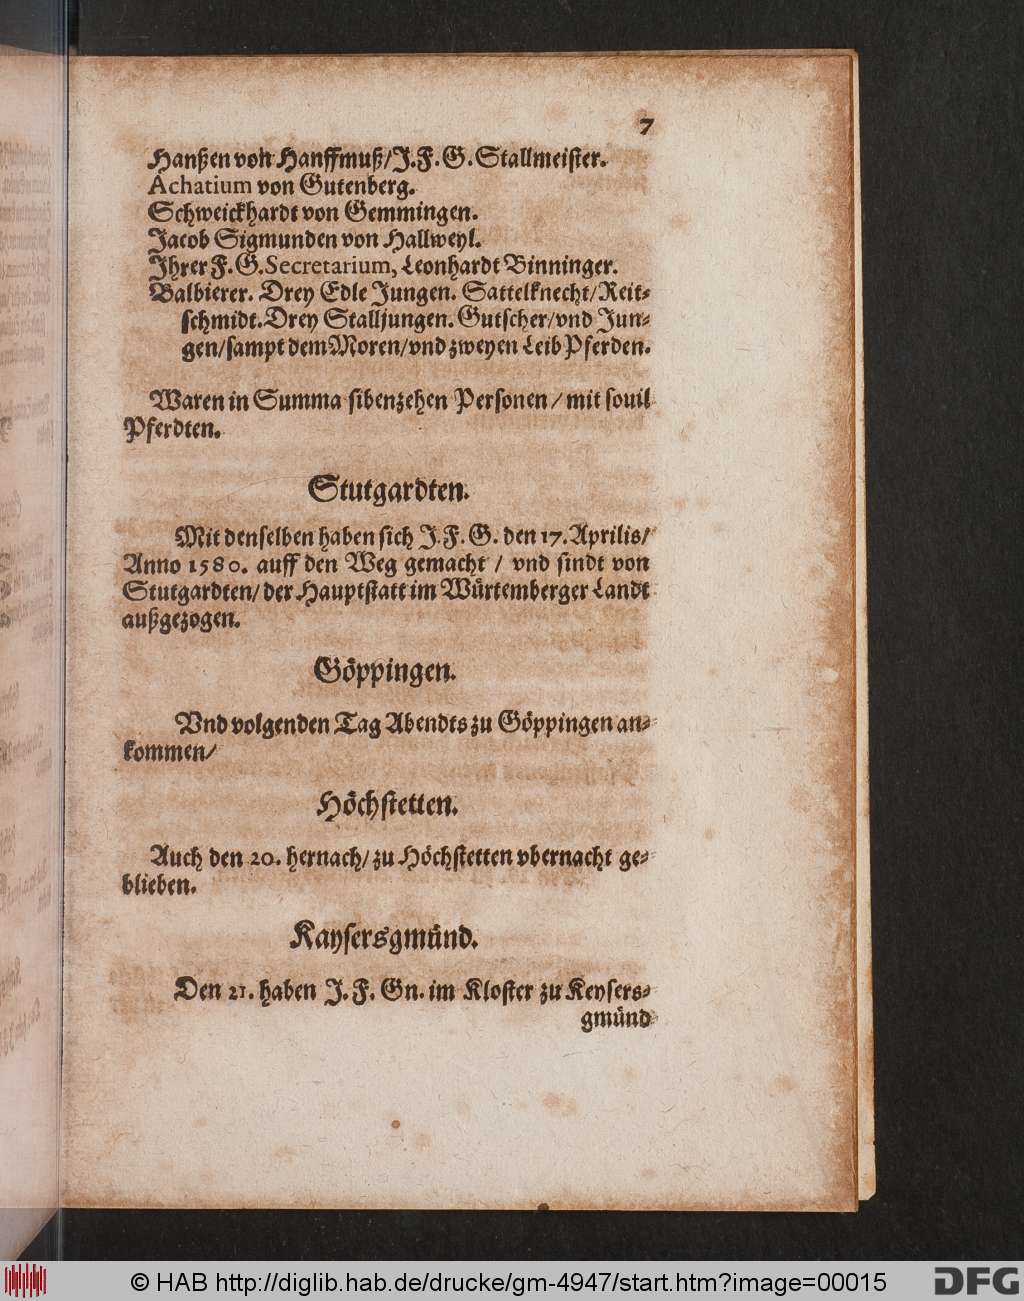 7
Hanßen von Hanffmuß/J.F.G. Stallmeister.
Achatium von Gutenberg.
Schweickhardt von Gemmingen.
Jacob Sigmunden von Hallweyl.
Jhrer F.G. Secretarium, Leonhardt Binninger.
Balbierer. Drey Edle Jungen. Sattelknecht/Reit-
schmidt. Drey Stalljungen. Gutscher/vnd Jun-
gen/sampt dem Moren/vnd zweyen Leib Pferden.
Waren in Summa sibenzehen Personen / mit souil
Pferdten.
Stutgardten.
Mit denselben haben sich J.F.G. den 17. Aprilis/
Anno 1580. auff den Weg gemacht / vnd sindt von
Stutgardten/ der Hauptstatt im Würtemberger Landt
außgezogen.
Göppingen.
Vnd volgenden Tag Abendts zu Göppingen an-
kommen/
Höchstetten.
Auch den 20. hernach/ zu Höchstetten vbernacht ge-
blieben.
Kaysersgmünd.
Den 21. haben J.F. Gn. im Kloster zu Keysers-
gmünd
© HAB http://diglib.hab.de/drucke/gm-4947/start.htm?image=00015
DFG